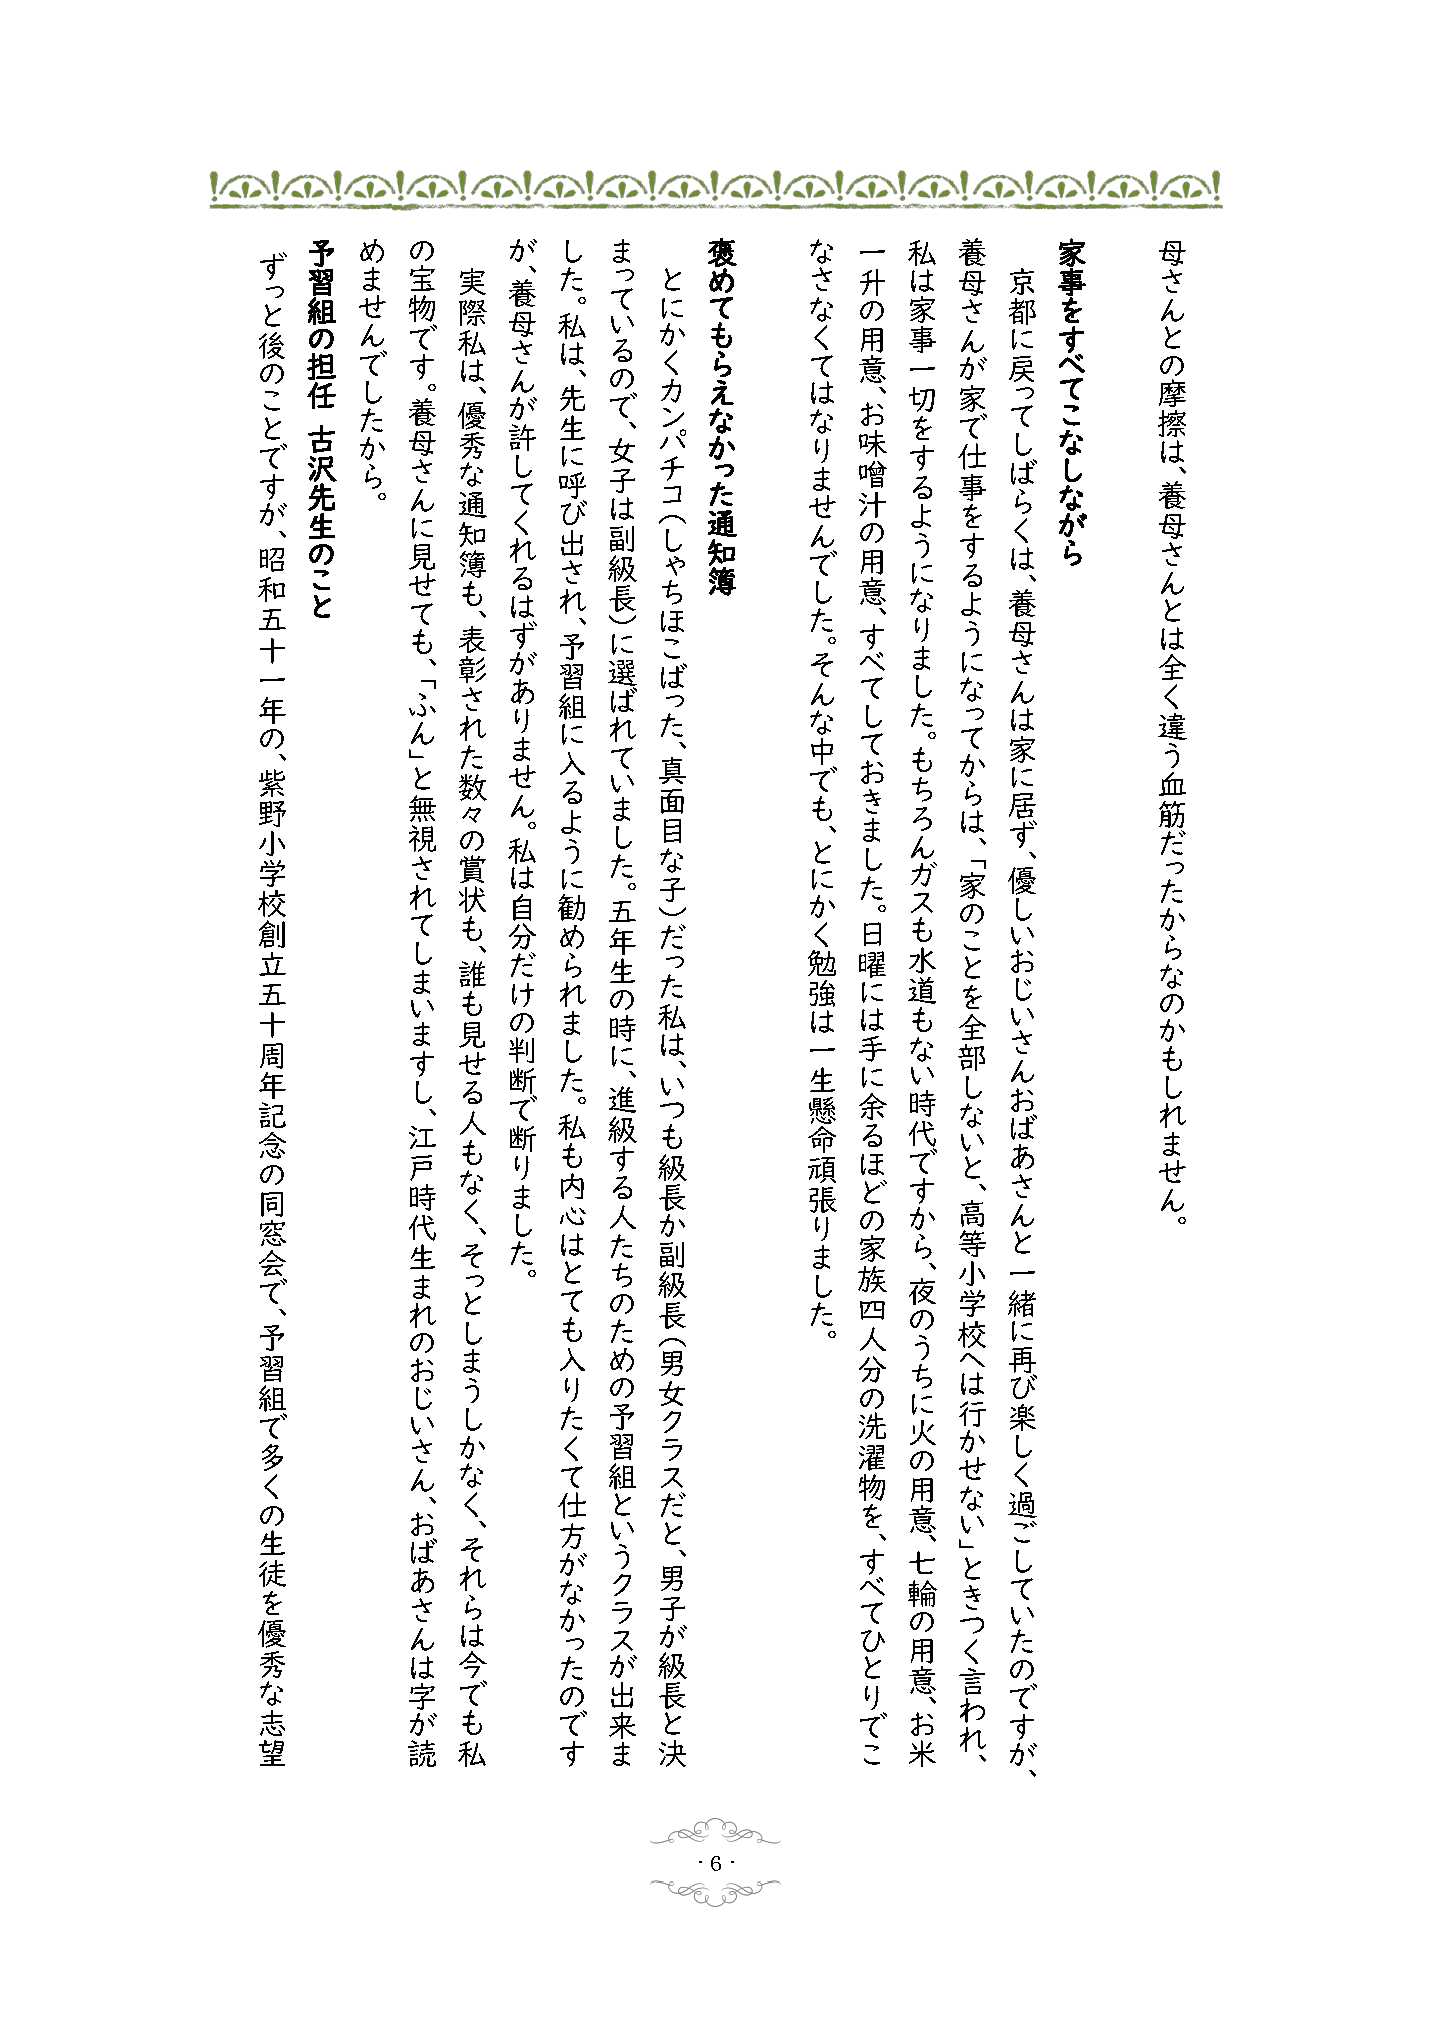 母さんとの摩擦は、養母さんとは全く違う血筋だったからなのかもしれません。
家事をすべてこなしながら
京都に戻ってしばらくは、養母さんは家に居ず、優しいおじいさんおばあさんと一緒に再び楽しく過ごしていたのですが、
養母さんが家で仕事をするようになってからは、「家のことを全部しないと、高等小学校へは行かせない」ときつく言われ、
私は家事一切をするようになりました。もちろんガスも水道もない時代ですから、夜のうちに火の用意、七輪の用意、お米
一升の用意、お味噌汁の用意、すべてしておきました。日曜には手に余るほどの家族四人分の洗濯物を、すべてひとりでこ
なさなくてはなりませんでした。そんな中でも、とにかく勉強は一生懸命頑張りました。
褒めてもらえなかった通知簿
とにかくカンパチコ(しゃちほこばった、真面目な子)だった私は、いつも級長か副級長(男女クラスだと、男子が級長と決
まっているので、女子は副級長)に選ばれていました。五年生の時に、進級する人たちのための予習組というクラスが出来ま
した。私は、先生に呼び出され、予習組に入るように勧められました。私も内心はとても入りたくて仕方がなかったのです
が、養母さんが許してくれるはずがありません。私は自分だけの判断で断りました。
実際私は、優秀な通知簿も、表彰された数々の賞状も、誰も見せる人もなく、そっとしまうしかなく、それらは今でも私
の宝物です。養母さんに見せても、「ふん」と無視されてしまいますし、江戸時代生まれのおじいさん、おばあさんは字が読
めませんでしたから。
予習組の担任 古沢先生のこと
ずっと後のことですが、昭和五十一年の、紫野小学校創立五十周年記念の同窓会で、予習組で多くの生徒を優秀な志望
- 6 -